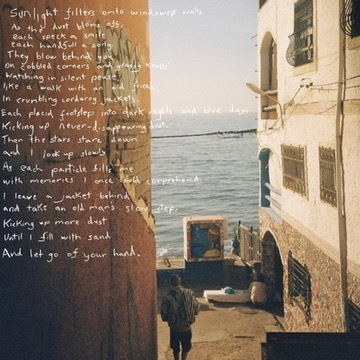 Sunlight filters onto windswept walls
As the dust blows off,
each speck a smile
each handfull a song
They blow behind you
on cobbled corners and grassy knolls
Watching in silent peace,
like a walk with an old friend
In crumbling corduroy jackets.
Each placid footstep into dark nights and blue days
Kicking up never-disappearing dust.
Then the stars stare down
and I look up slowly
As each particle fills me
with memories I once could comprehend.
I leave a jacket behind
and take an old mans slow step,
Kicking up more dust
Until I fill with sand
And let go of your hand.